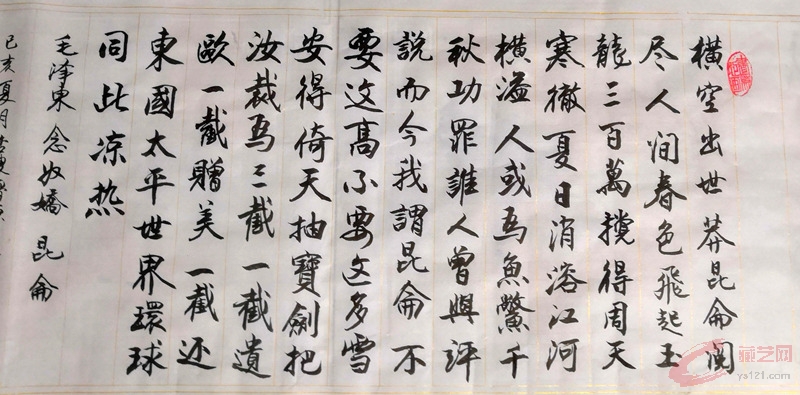 橫空出世莽昆侖閱
尽人间春色飛起玉
龍三百萬攪得周天
寒徹夏日消溶江河
橫溢人或為魚鱉千
秋功罪誰人曾與評
說而今我謂昆侖不
要这高不要这多雪
安得倚天抽寶劍把
汝裁為三截一截遺
歐一截贈美一截还
東國太平世界環球
同此凉热
毛泽東念奴嬌昆侖
己亥夏月
藏艺网
ys121.com